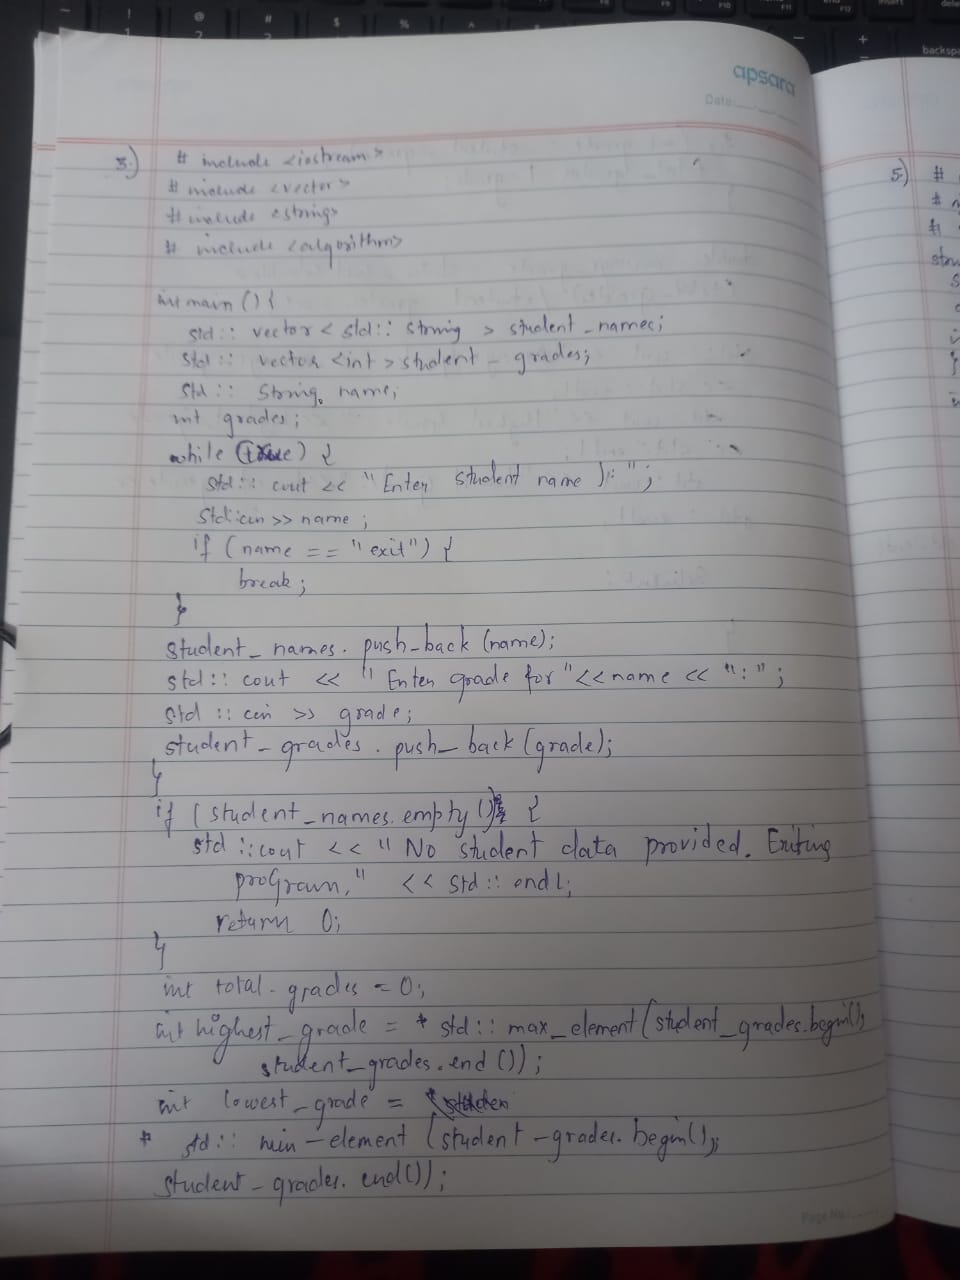 apsara
Date:
3.) # include <iostream>
# include <vector>
# include <string>
# include <algorithm>
int main () {
std :: vector < std :: string > student _ names;
std :: vector <int> student _ grades;
std :: string name;
int grades;
while (true) {
std :: cout << "Enter student name ): ";
std:cin >> name ;
if (name == "exit") {
break;
}
student_ names. push_back (name);
std :: cout << "Enter grade for" << name << ":" ;
std :: cin >> grade;
student_ grades. push_ back (grade);
}
if (student_names.empty ()) {
std :: cout << "No student data provided. Exiting
proGram," << std :: endl;
return 0;
}
int total_grades = 0;
int highest_grade = * std:: max_element(student_grades.begin(),
student_grades.end ());
int lowest_grade =
* std:: min_element (student_grades. begin(),
student_grades. end());
Page No.:
5.) #
#